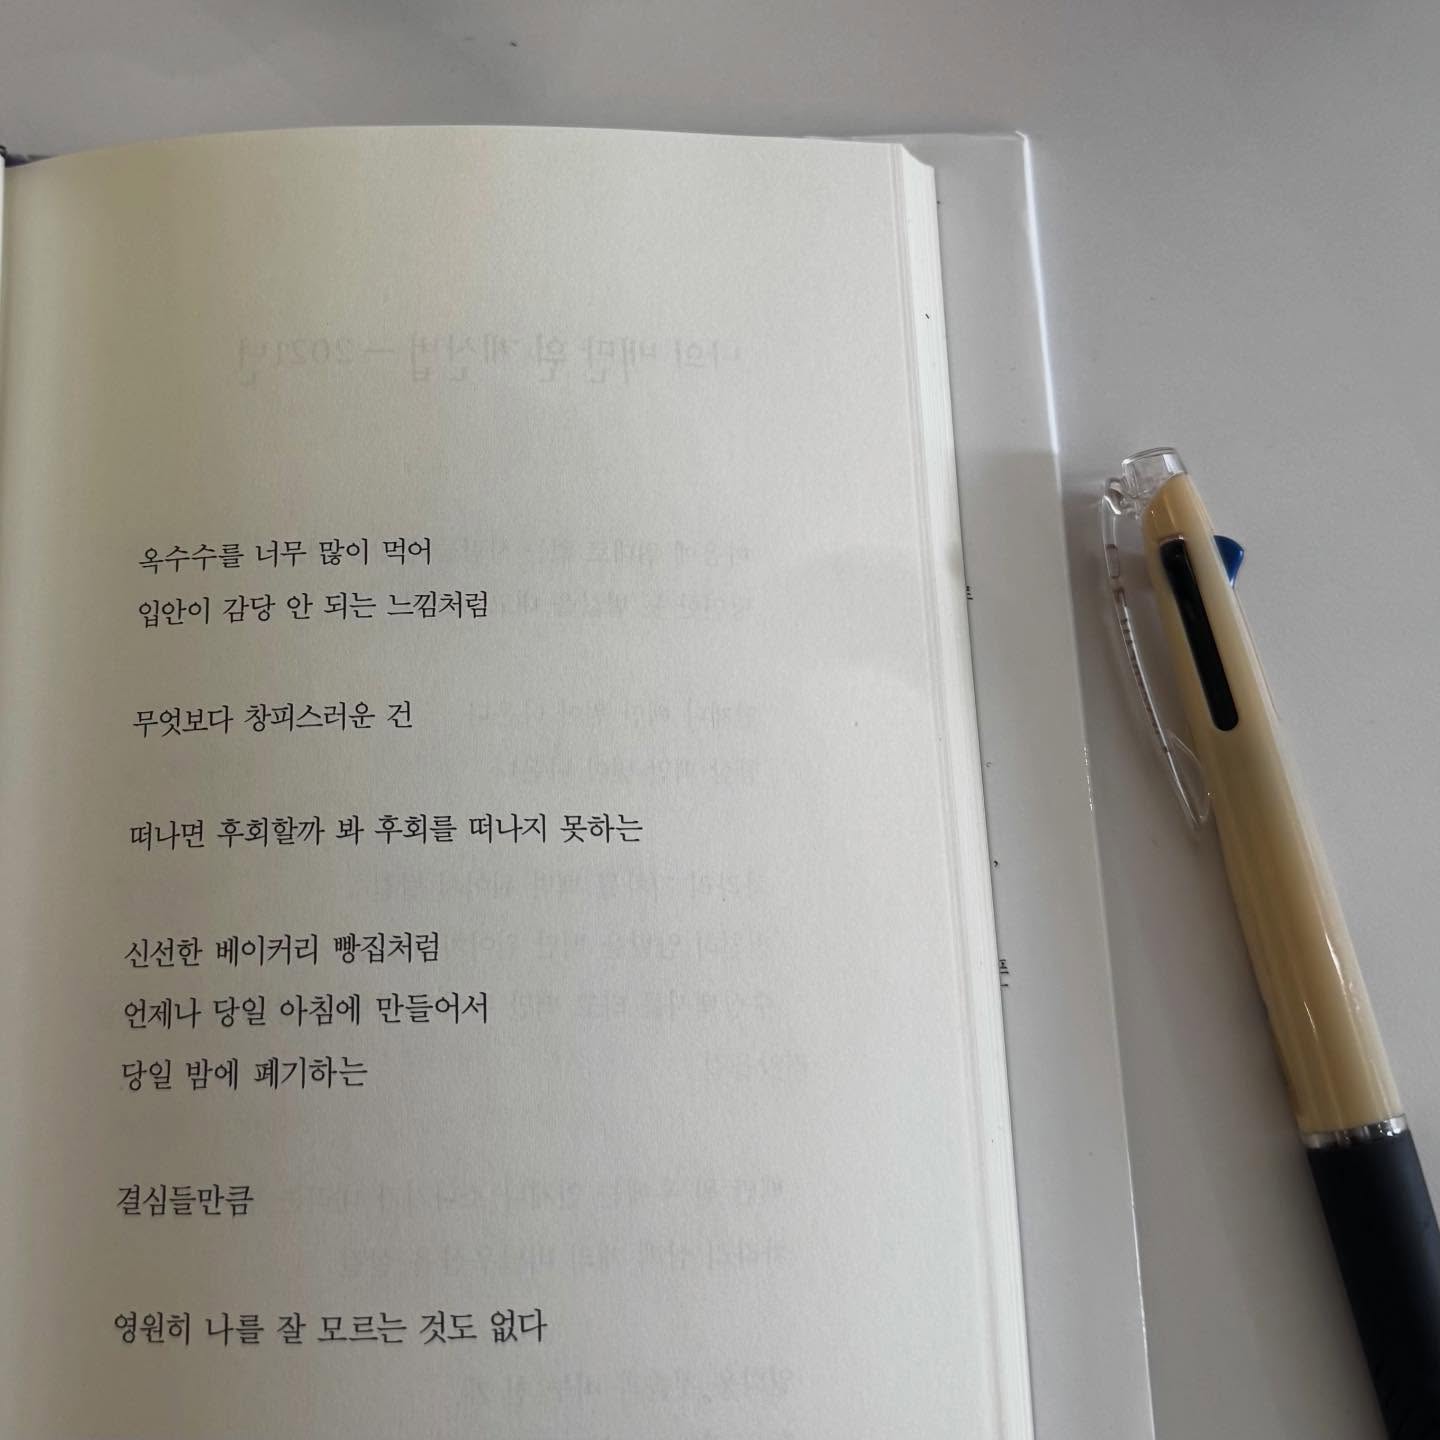 옥수수를 너무 많이 먹어
입안이 감당 안 되는 느낌처럼
무엇보다 창피스러운 건
떠나면 후회할까 봐 후회를 떠나지 못하는
신선한 베이커리 빵집처럼
언제나 당일 아침에 만들어서
당일 밤에 폐기하는
결심들만큼
영원히 나를 잘 모르는 것도 없다